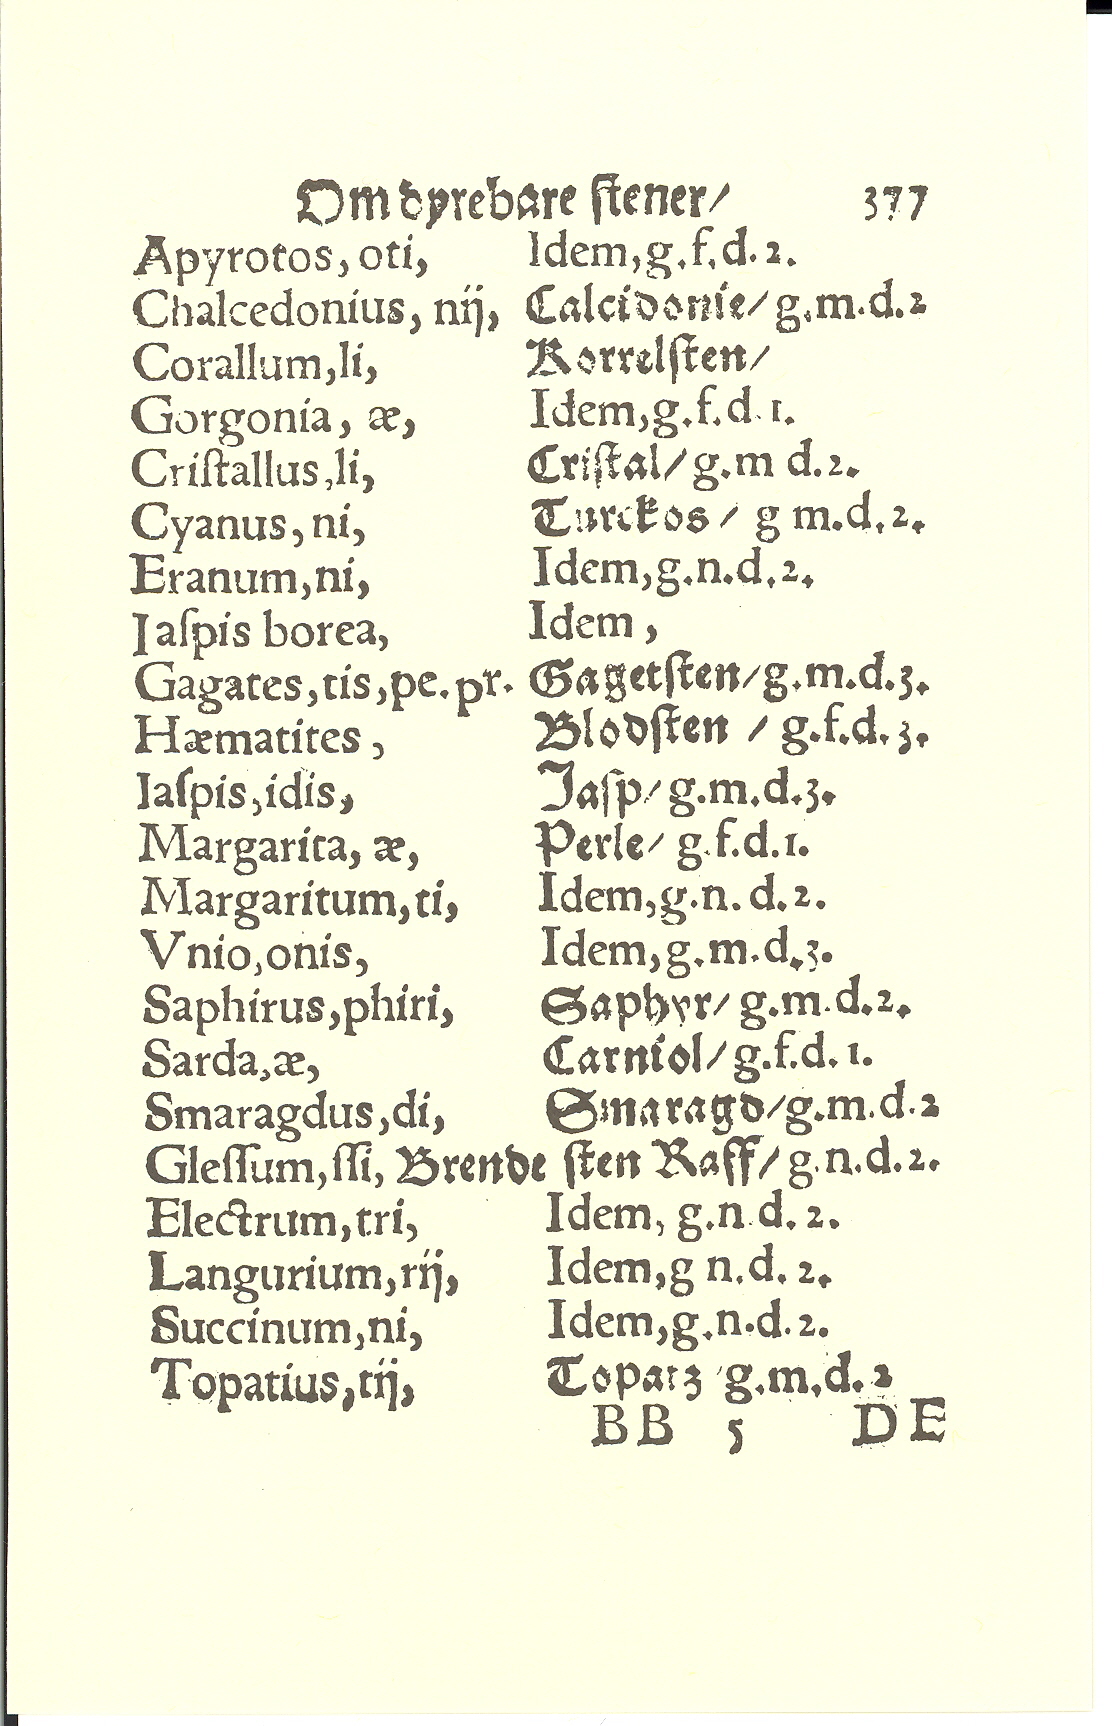 Om dyrebare ſtener/ 377
Apyrotos, oti, Idem, g. f. d. 2.
Chalcedonius, nij, Calcidonie/ g. m. d. 2
Corallum, li, Korrelſten/
Gorgonia, æ, Idem, g. f. d. 1.
Criſtallus, li, Criſtal/ g. m d. 2.
Cyanus, ni, Turckos/ g m. d. 2.
Eranum, ni, Idem, g. n. d. 2.
Iaſpis borea, Idem,
Gagates, tis, pe. pr. Gagetſten/ g. m. d. 3.
Hæmatites, Blodſten / g. f. d. 3.
Iaſpis, idis, Jaſp/ g. m. d. 3.
Margarita, æ, Perle/ g. f. d. 1.
Margaritum, ti, Idem, g. n. d. 2.
Vnio, onis, Idem, g. m. d. 3.
Saphirus, phiri, Saphyr/ g. m. d. 2.
Sarda, æ, Carniol/ g. f. d. 1.
Smaragdus, di, Smaragd/ g. m. d. 2
Gleſſum, ſſi, Brende ſten Raff/ g. n. d. 2.
Electrum, tri, Idem, g. n d. 2.
Langurium, rij, Idem, g n. d. 2.
Succinum, ni, Idem, g. n. d. 2.
Topatius, tij, Topatz g. m. d. 2
BB 5 DE